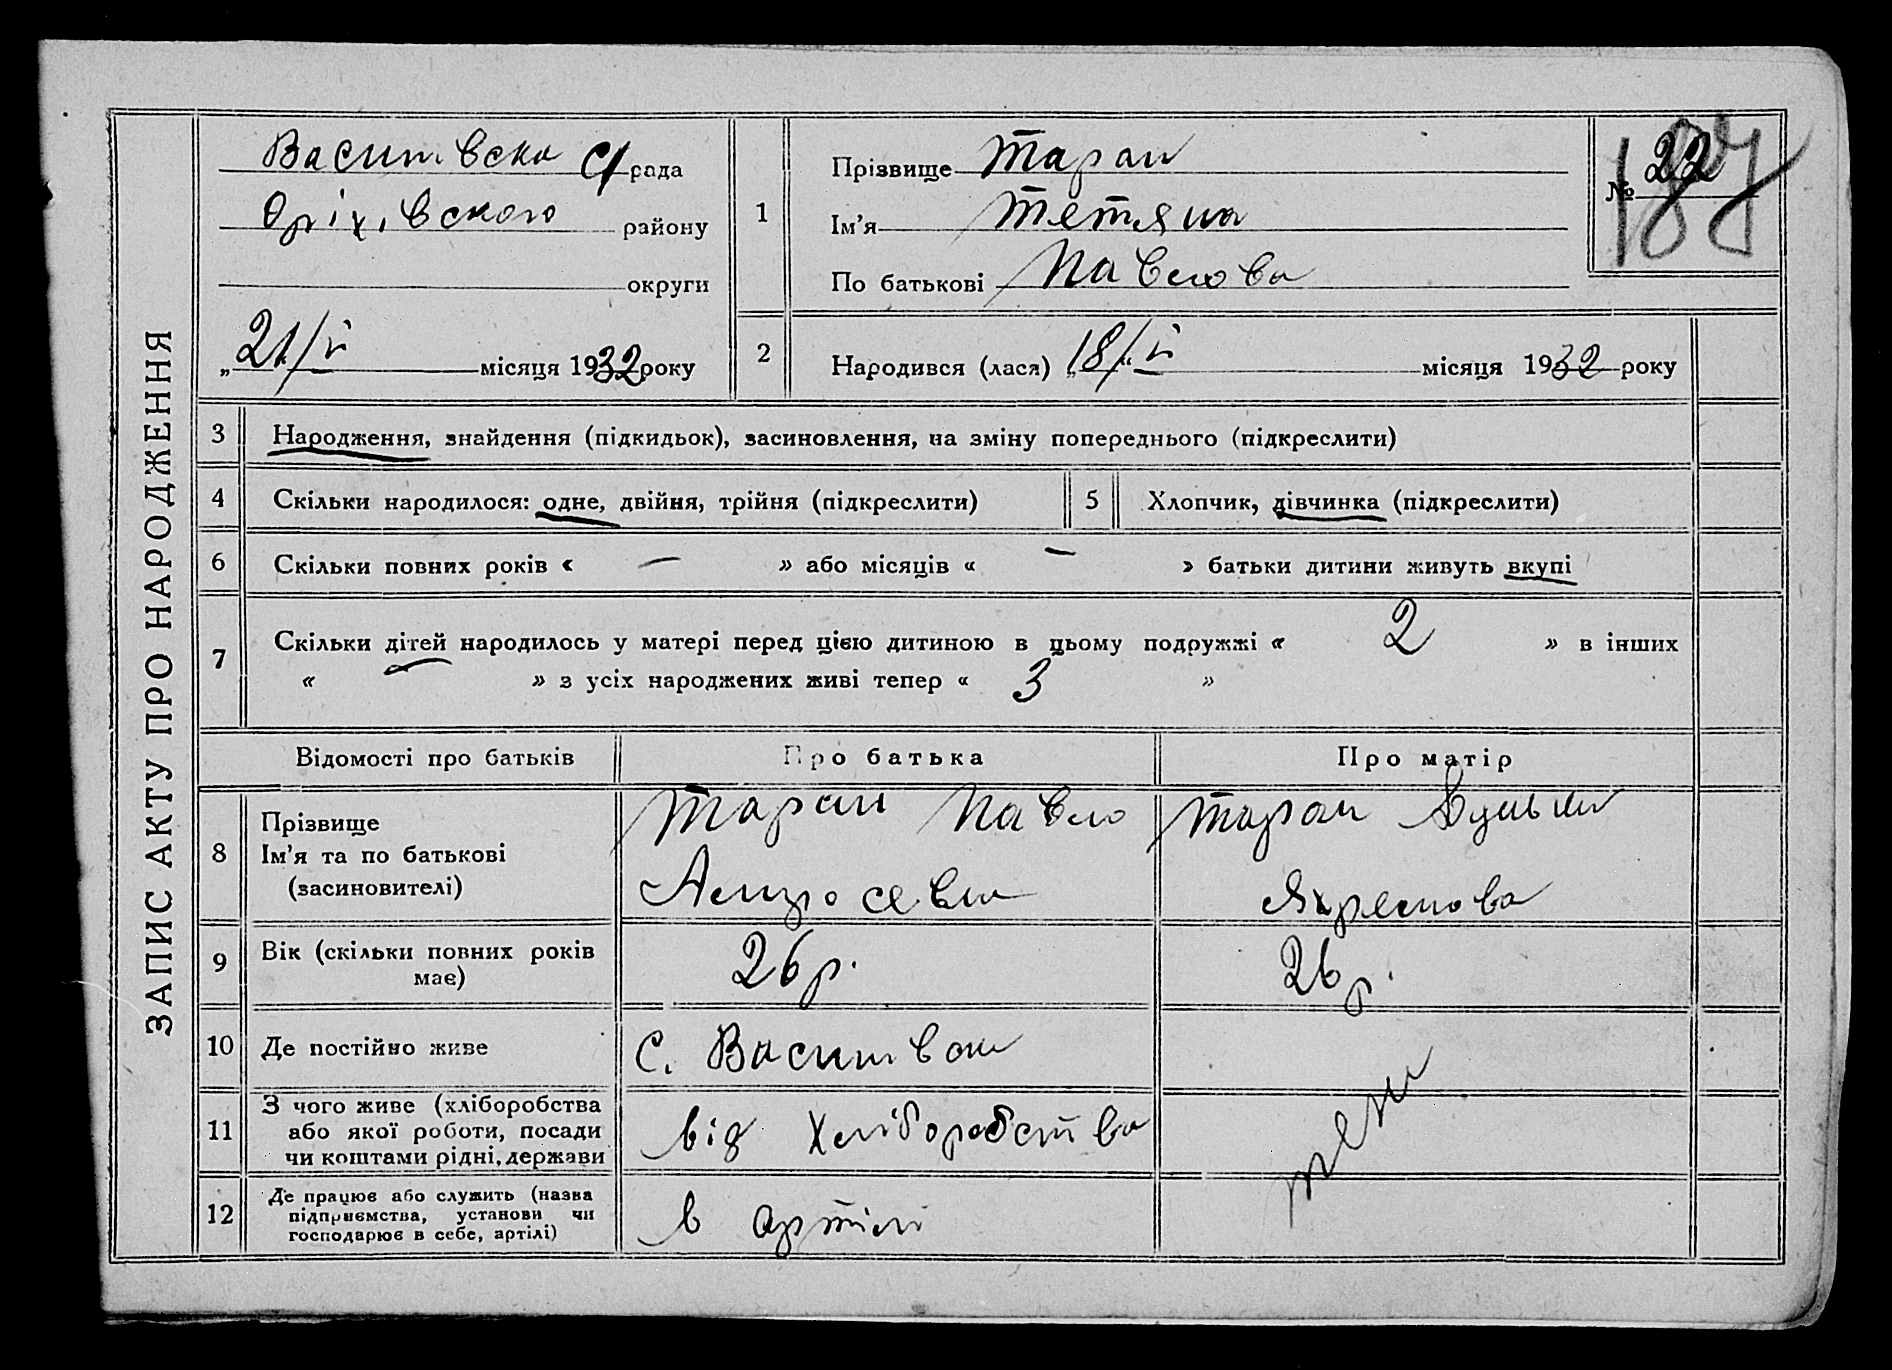 ЗАПИС АКТУ ПРО НАРОДЖЕННЯ
Василівська С/рада
Оріхівського району
округи
„ 21/V місяця 1932 року
1
Прізвище Таран
Ім'я Тетяна
По батькові Павлова
№ 22
187
2
Народився (лася) „ 18/V “ місяця 1932 року
3 Народження, знайдення (підкидьок), засиновлення, на зміну попереднього (підкреслити)
4 Скільки народилося: одне, двійня, трійня (підкреслити)
5 Хлопчик, дівчинка (підкреслити)
6 Скільки повних років « — » або місяців « — » батьки дитини живуть вкупі
7 Скільки дітей народилось у матері перед цією дитиною в цьому подружжі « 2 » в інших
« » з усіх народжених живі тепер « 3 »
Відомості про батьків
Про батька
Про матір
8
Прізвище
Ім'я та по батькові
(засиновителі)
Таран Павло
Таран
9
Вік (скільки повних років
має)
26 р.
26 р.
10 Де постійно живе
с. Василівки
11
З чого живе (хліборобства
або якої роботи, посади
чи коштами рідні, держави
від Хліборобства
12
Де працює або служить (назва
підприємства, установи чи
господарює в себе, артілі)
в артілі